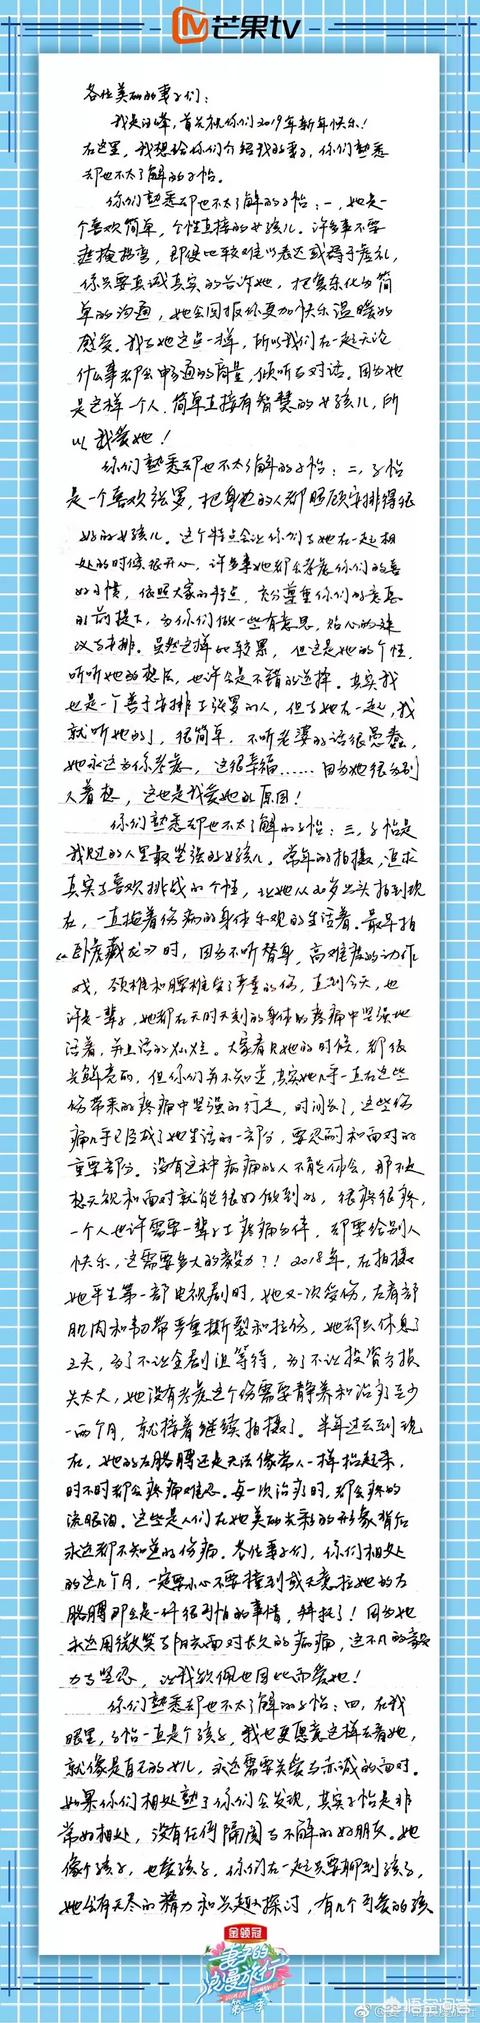 芒果tv
各位美丽的妻子们：
我是汪峰，首先祝你们2019年新年快乐！
在这里，我想给你们介绍我的妻子，你们熟悉
却也不太了解的子怡。
你们熟悉却也不太了解的子怡：一，她是一
个喜欢简单，个性直接的女孩儿。许多事不要
遮掩拐弯，即使比较难以表达或碍于虚礼，
你只要真诚真实的告诉她，把复杂化为简
单的沟通，她会回报你更加快乐温暖的
感受。我与她这点一样，所以我们在一起无论
什么事都会畅通的商量，倾听与对话。因为她
是这样一个人，简单直接有智慧的女孩儿，所
以我爱她！
你们熟悉却也不太了解的子怡：二，子怡
是一个喜欢张罗，把身边的人都照顾安排得很
好的女孩儿。这个特点会让你们与她在一起相
处的时候很开心，许多事她都会考虑你们的喜
好习惯，依照大家的特点，充分尊重你们的意愿
的前提下，为你们做一些有意思，贴心的建
议与安排。虽然这样比较累，但这是她的个性，
听听她的想法，也许会是不错的选择。其实我
也是一个善于安排与张罗的人，但与她在一起，我
就听她的了，很简单，不听老婆的话很愚蠢，
她永远为你考虑，这很幸福……因为她很为别
人着想，这也是我爱她的原因！
你们熟悉却也不太了解的子怡：三，子怡是
我见过的人里最坚强的女孩儿。常年的拍摄，追求
真实与喜欢挑战的个性，让她从20岁出头拍到现
在，一直拖着伤病的身体乐观的生活着。最早拍
《卧虎藏龙》时，因为不用替身，高难度的动作
戏，颈椎和腰椎受了严重的伤，直到今天，也
许是一辈子，她都在无时无刻的身体的疼痛中坚强地
活着，并且活的灿烂。大家看见她的时候，都很
光鲜亮丽，但你们并不知道，其实她几乎一直在这些
伤带来的疼痛中坚强的行走，时间长了，这些伤
痛几乎已经成了她生活的一部分，要忍耐和面对的
重要部分。没有这种病痛的人不能体会，那不是
想无视和面对就能很好做到的，很疼很疼，
一个人也许需要一辈子与疼痛为伴，却要给别人
快乐，这需要多大的毅力？！2018年，在拍摄
她平生第一部电视剧时，她又一次受伤，左肩部
肌肉和韧带严重撕裂和拉伤，她却只休息了
三天，为了不让全剧组等待，为了不让投资方损
失太大，她没有考虑这个伤需要静养和治疗至少
一两个月，就接着继续拍摄了。半年过去到现
在，她的左胳膊还是无法像常人一样抬起来，
时不时都会疼痛难忍。每一次治疗时，都会疼的
流眼泪。这些是人们在她美丽光彩的形象背后
永远都不知道的伤病。各位妻子们，你们相处
的这几个月，一定要小心不要撞到或无意拉她的左
胳膊那会是一件很可怕的事情，拜托了！因为她
永远用微笑与阳光面对长久的病痛，这不凡的毅
力与坚忍，让我钦佩也因此而爱她！
你们熟悉却也不太了解的子怡：四，在我
眼里，子怡一直是个孩子，我也更愿意这样去看她，
就像是自己的女儿，永远需要关爱与赤诚的面对。
如果你们相处熟了你们会发现，其实子怡是非
常好相处，没有任何隔阂与不解的好朋友。她
像个孩子，也爱孩子，你们在一起只要聊到孩子，
她会有无尽的精力和兴趣探讨，有几个可爱的孩
金领冠
妻子的
浪漫旅行
第二季
悟空问答